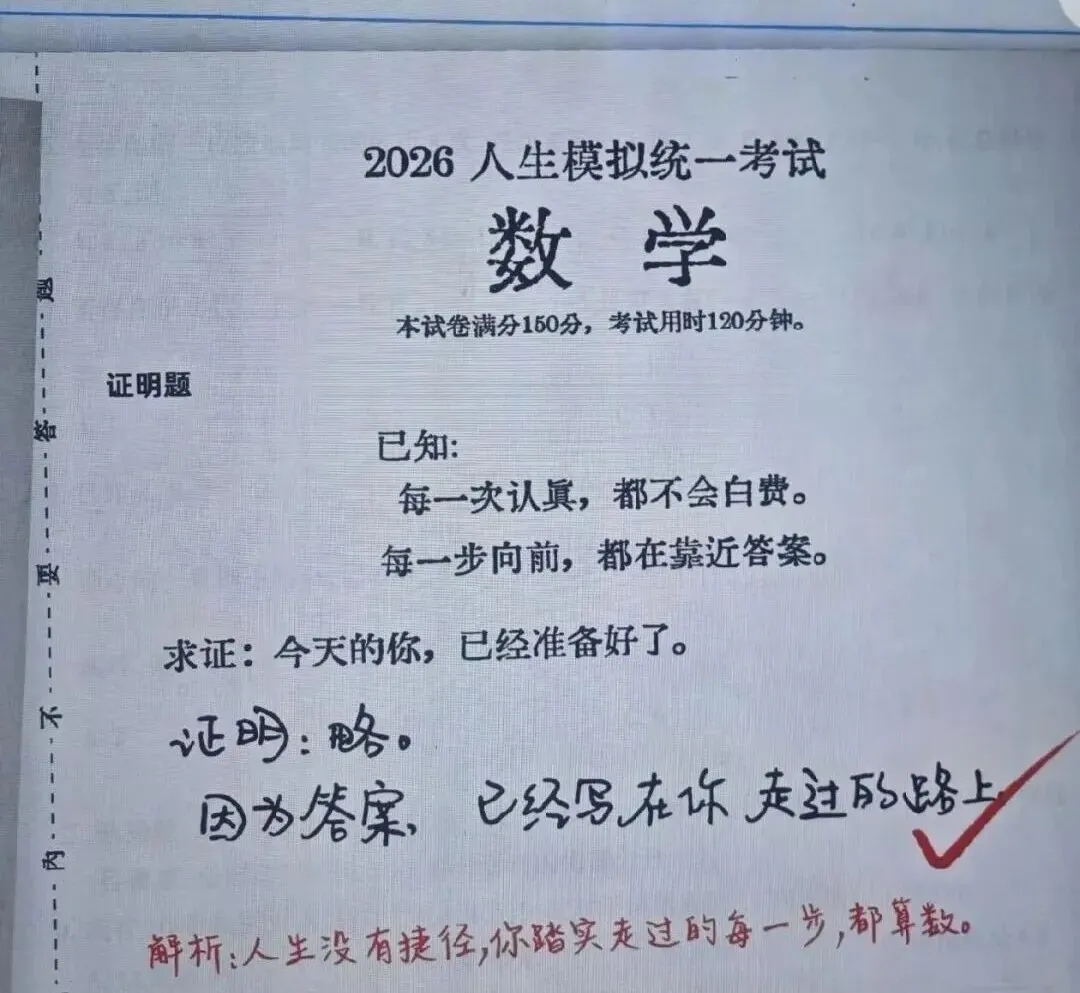 2026 人生模拟统一考试
数 学
本试卷满分150分，考试用时120分钟。
证明题
已知:
每一次认真，都不会白费。
每一步向前，都在靠近答案。
求证：今天的你，已经准备好了。
证明：略。
因为答案，已经写在你走过的路上
解析：人生没有捷径，你踏实走过的每一步，都算数。
内 不 要 答 题